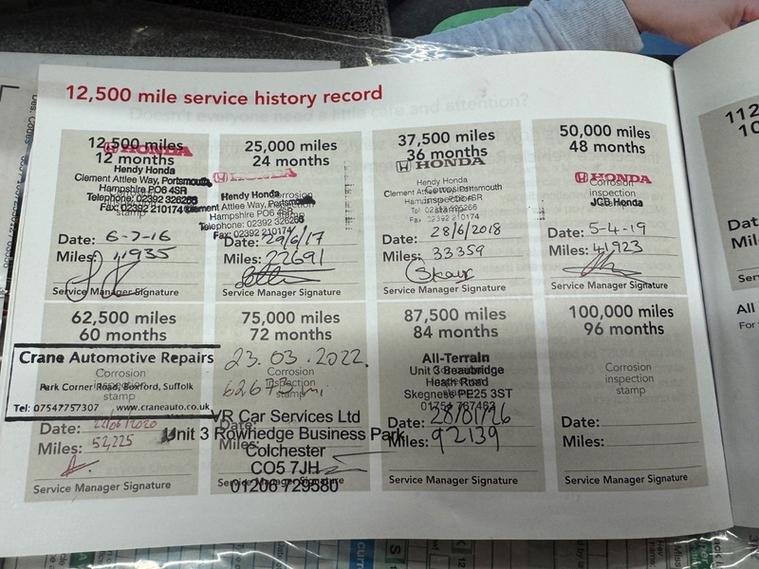 12,500 mile service history record
12,500 miles
12 months
HONDA
Hendy Honda
Clement Attlee Way, Portsmouth
Hampshire PO6 4SR
Telephone: 02392 326266
Fax: 02392 210174
stamp
Date: 6-7-16
Miles: 11935
Service Manager Signature
25,000 miles
24 months
HONDA
Hendy Honda
Clement Attlee Way, Portsmouth
Hampshire PO6 4SR
Telephone: 02392 326266
Fax: 02392 210174
Date: 29/6/17
Miles: 22691
Service Manager Signature
37,500 miles
36 months
HONDA
Hendy Honda
Clement Attlee Way, Portsmouth
Date: 28/6/2018
Miles: 33359
Service Manager Signature
50,000 miles
48 months
HONDA
Corrosion
inspection
JCB Honda
Date: 5-4-19
Miles: 41923
Service Manager Signature
62,500 miles
60 months
Crane Automotive Repairs
Corrosion
inspection
Park Corner Road, Boxford, Suffolk
stamp
Tel: 07547757307 www.craneauto.co.uk
Date: 22/06/2020
Miles: 52,225
Service Manager Signature
75,000 miles
72 months
23.03.2022.
Corrosion
inspection
62673 mi
stamp
VR Car Services Ltd
Unit 3 Rowhedge Business Park
Date:
Miles:
Colchester
CO5 7JH
Service Manager Signature
01206 729580
87,500 miles
84 months
All-Terrain
Unit 3 Beaubridge
Heath Road
Skegness PE25 3ST
01754 767463
Date: 28/01/26
Miles: 92139
Service Manager Signature
100,000 miles
96 months
Corrosion
inspection
stamp
Date:
Miles:
Service Manager Signature
112
Dat
Mil
Ser
All
For